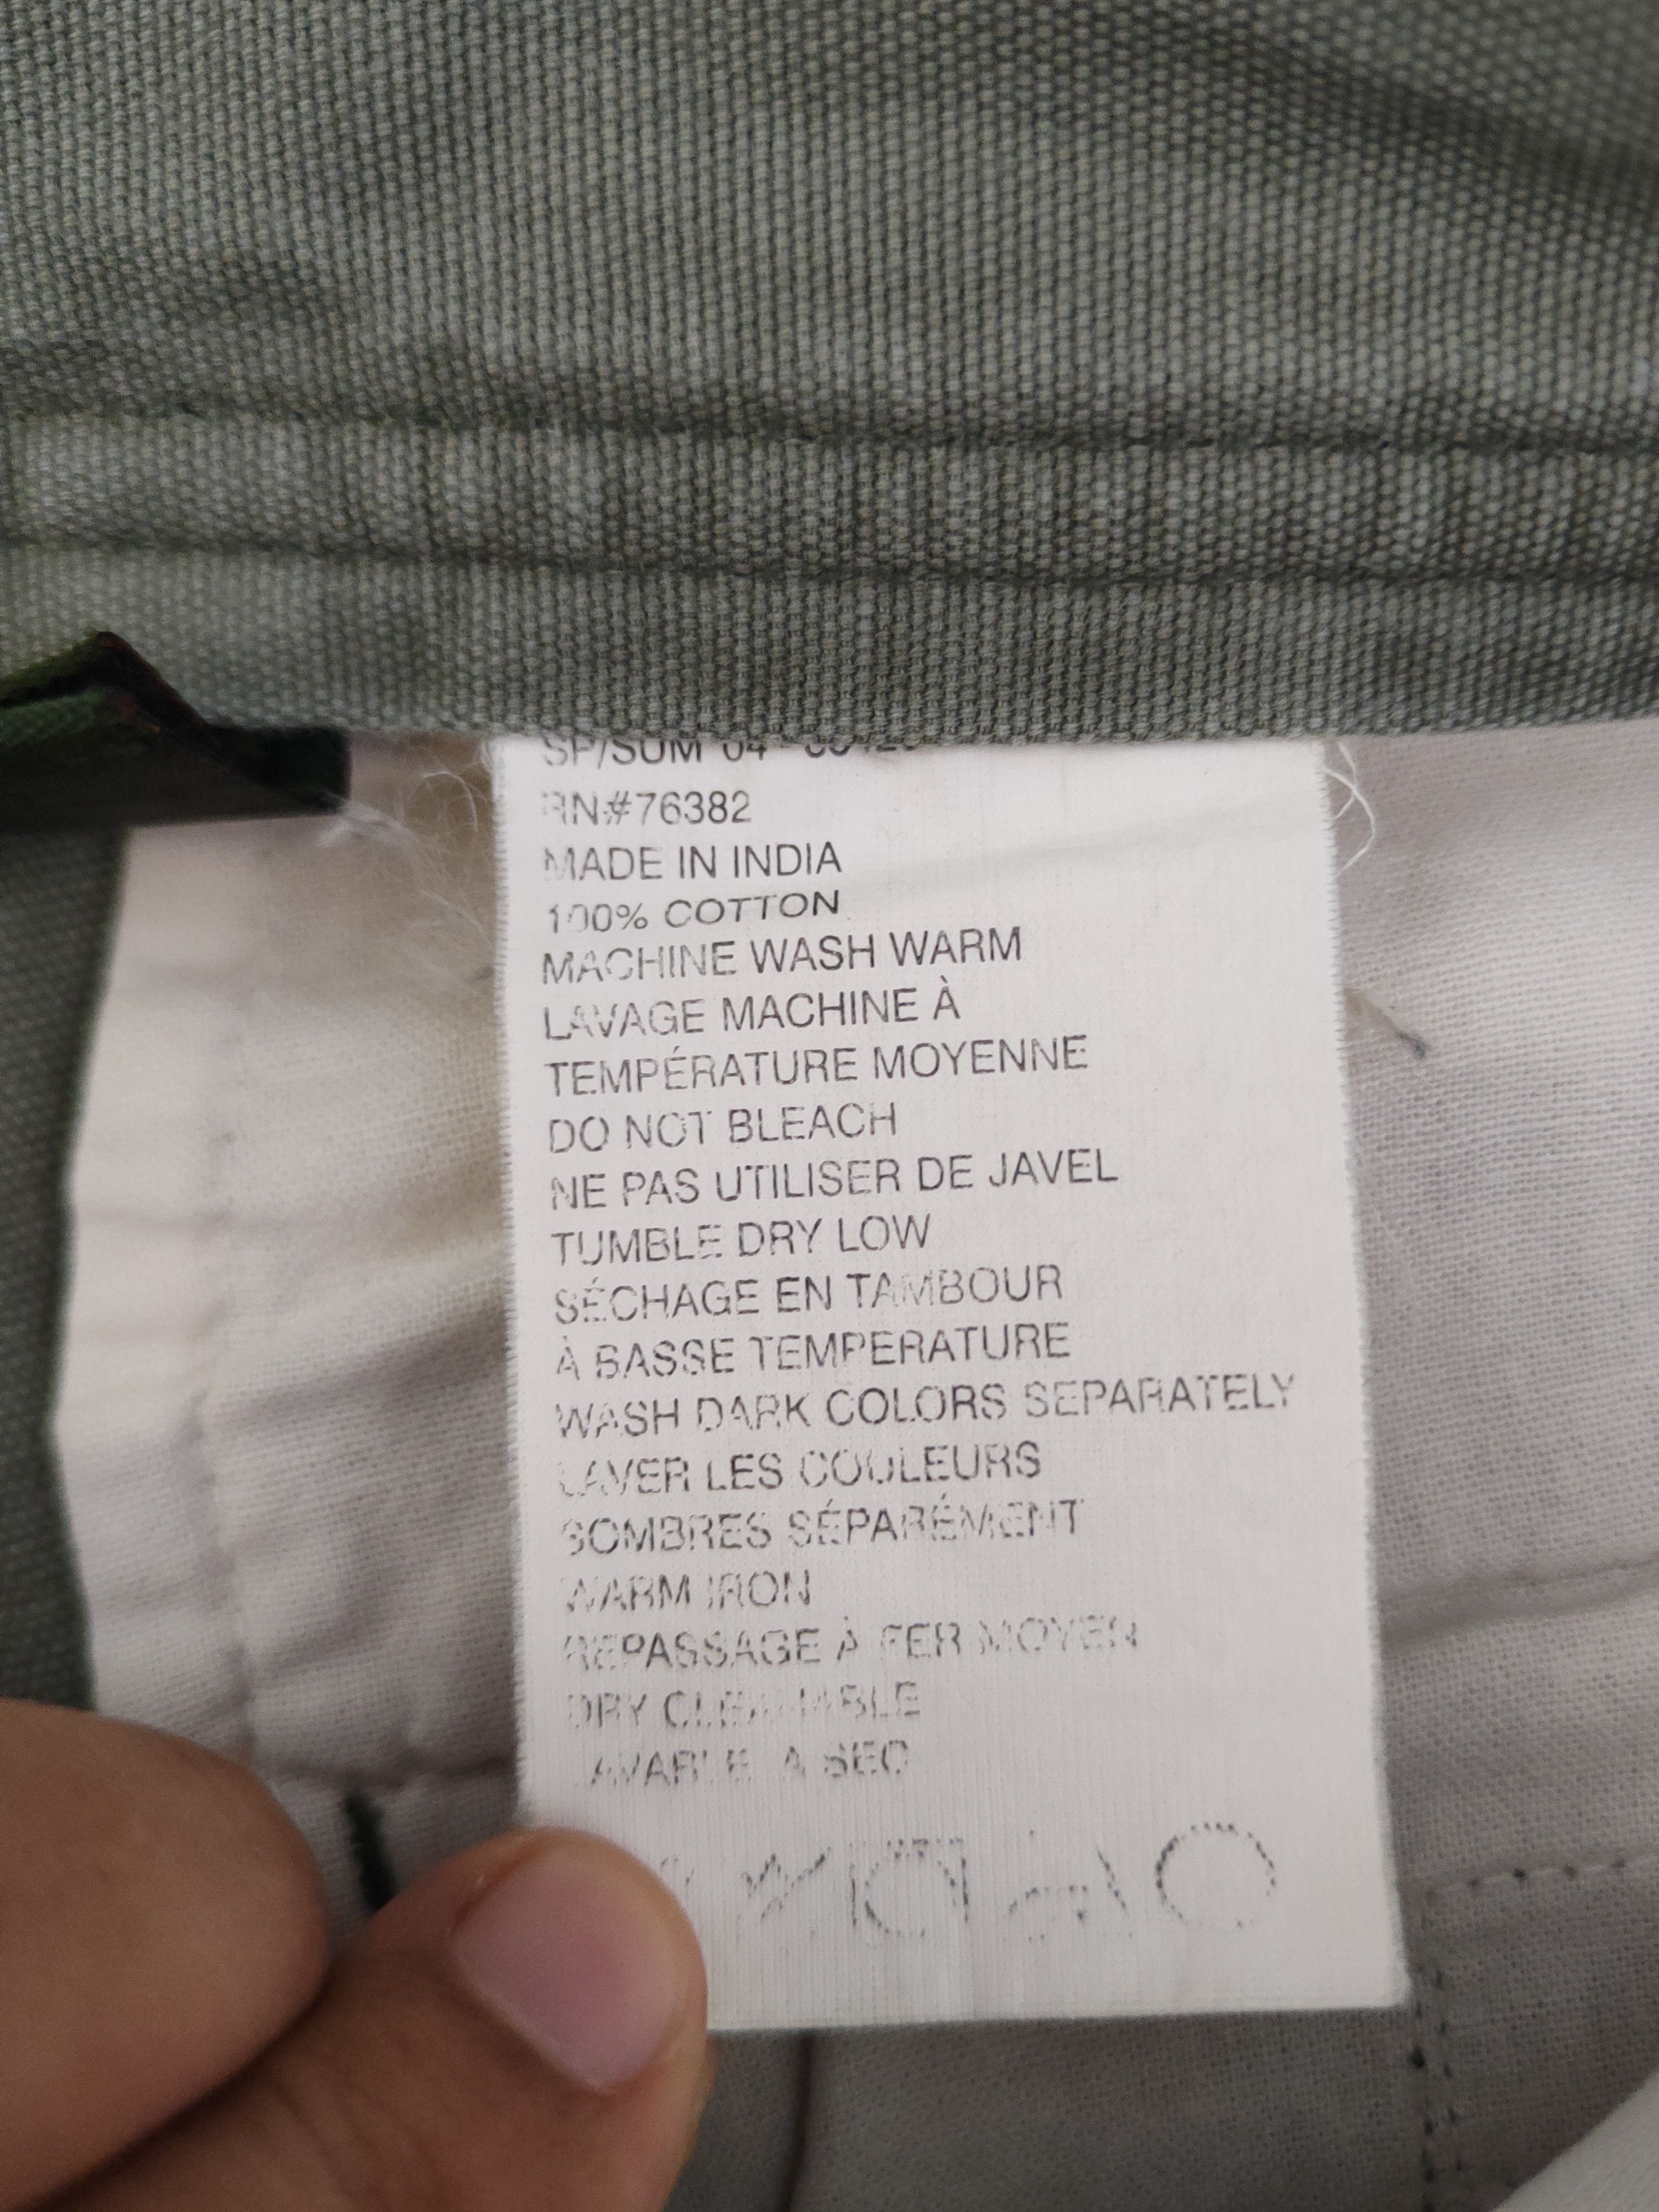 SP/SUM 04
RN#76382
MADE IN INDIA
100% COTTON
MACHINE WASH WARM
LAVAGE MACHINE À
TEMPÉRATURE MOYENNE
DO NOT BLEACH
NE PAS UTILISER DE JAVEL
TUMBLE DRY LOW
SÉCHAGE EN TAMBOUR
À BASSE TEMPERATURE
WASH DARK COLORS SEPARATELY
LAVER LES COULEURS
SOMBRES SÉPARÉMENT
WARM IRON
REPASSAGE À FER MOYEN
DRY CLEANABLE
LAVABLE A SEC